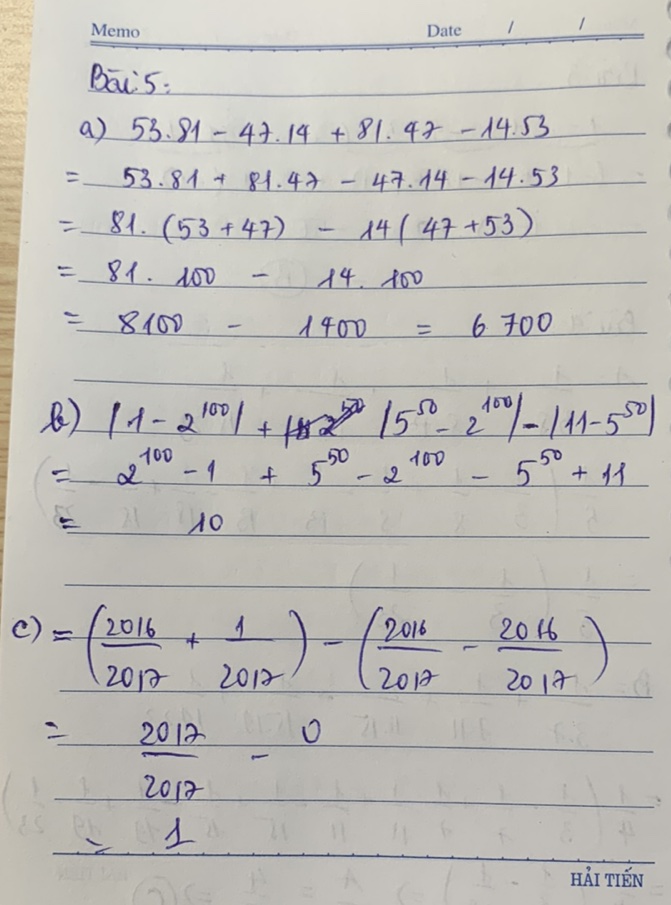 Memo Date / /
Bài 5:
a) 53.81 - 47.14 + 81.47 - 14.53
= 53.81 + 81.47 - 47.14 - 14.53
= 81.(53+47) - 14(47+53)
= 81.100 - 14.100
= 8100 - 1400 = 6700
b) |1 - 2^100| + |5^50 - 2^100| - |11 - 5^50|
= 2^100 - 1 + 5^50 - 2^100 - 5^50 + 11
= 10
c) = (2016/2017 + 1/2017) - (2016/2017 - 2016/2017)
= 2017/2017 - 0
= 1
HẢI TIẾN